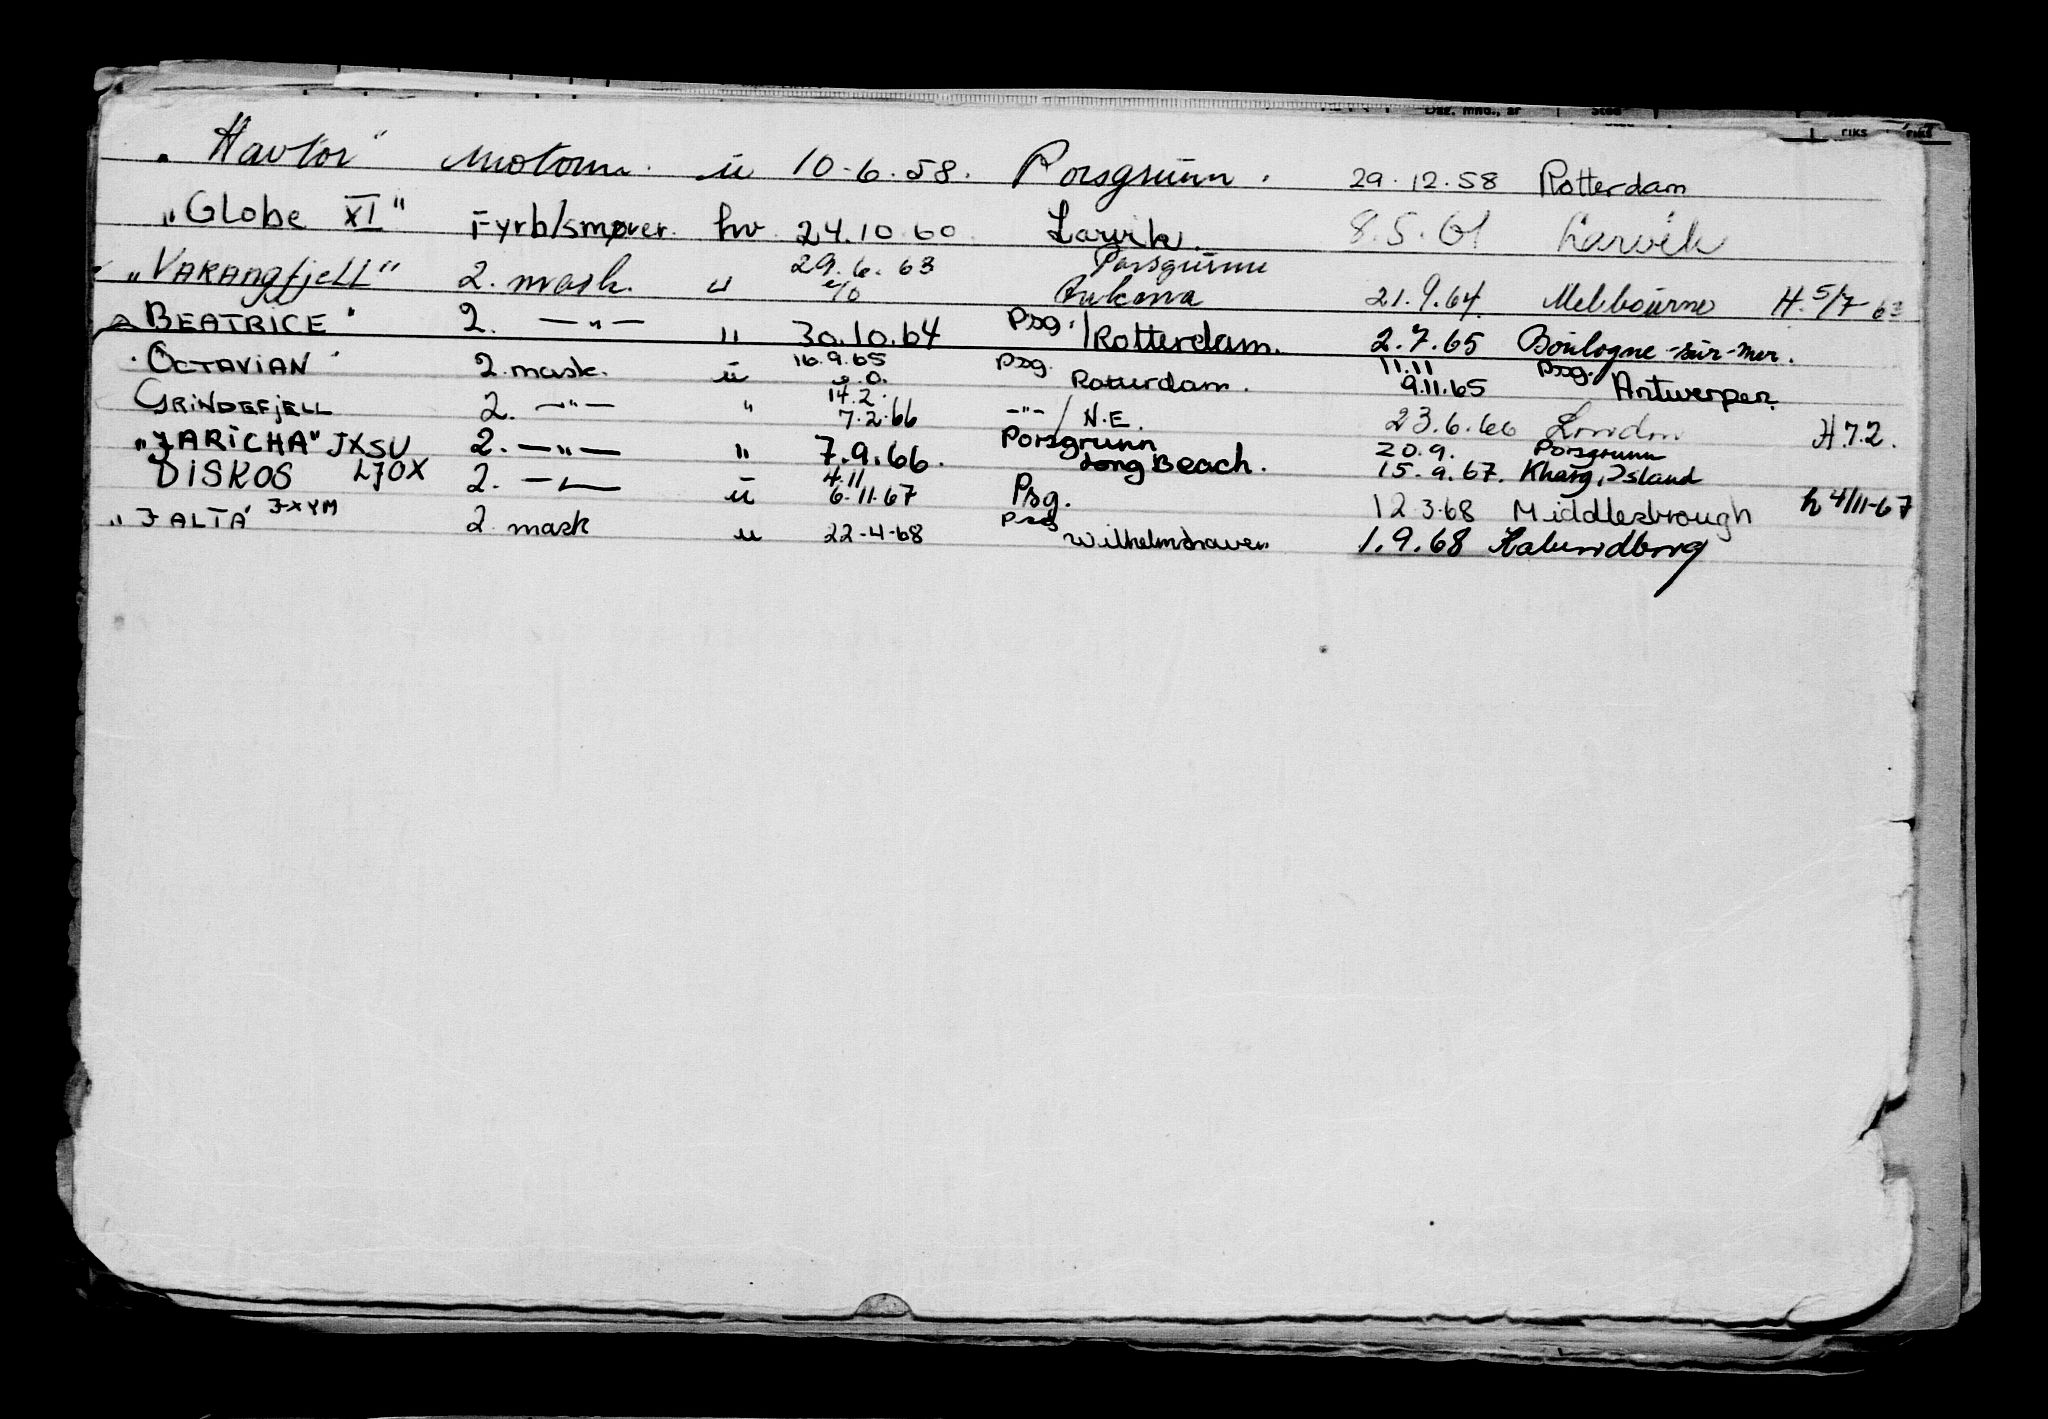 Dag, mnd., år Sted
riks riks
"Havtor" motorm. u 10-6.58. Porsgrunn. 29.12.58 Rotterdam
"Globe XI" Fyrb/smører. hv. 24.10.60. Larvik. 8.5.61 Larvik
29.6.63 Porsgrunn
"VARANGfjELL" 2. mask. u 21.9.64. Melbourne H. 5/7-63
"BEATRICE" 2. —"— u 30.10.64 Psg./Rotterdam. 2.7.65 Boulogne-sur-mer.
16.9.65 Psg. 11.11 Psg.
"OCTAVIAN" 2. mask. u Rotterdam. 9.11.65 Antwerpen
14.2.
GRINDEFjELL 2. —"— " 7.2.66 —"— / N.E. 23.6.66 London H 7.2.
Porsgrunn 20.9. Porsgrunn
"JARICHA" JXSU 2. —"— " 7.9.66. Long Beach. 15.9.67. Kharg, Island
4.11
DISKOS LJOX 2. — u 6.11.67 Psg. 12.3.68 Middlesbrough h 4/11-67
Psg
"JALTA" JXYM 2 mask u 22-4-68 Wilhelmshaven 1.9.68 Kalundborg